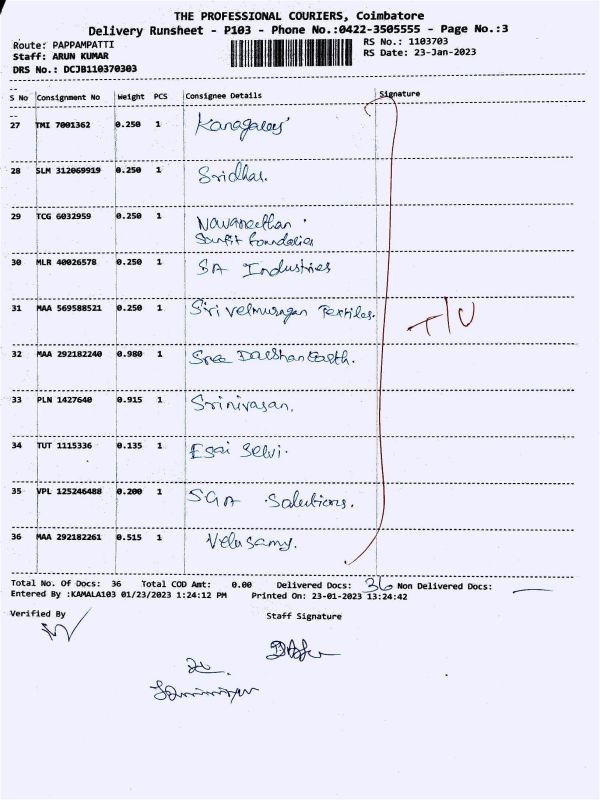 THE PROFESSIONAL COURIERS, Coimbatore
Delivery Runsheet - P103 - Phone No.:0422-3505555 - Page No.:3
Route: PAPPAMPATTI
Staff: ARUN KUMAR
DRS No.: DCJB110370303
RS No.: 1103703
RS Date: 23-Jan-2023
S No Consignment No Weight PCS Consignee Details Signature
27 TMI 7001362 0.250 1
28 SLM 312069919 0.250 1 Sridhar.
29 TCG 6032959 0.250 1 Navaneethan
30 MLR 40026578 0.250 1 SA Industries
31 MAA 569588521 0.250 1 Sri velmurugan Textiles.
32 MAA 292182240 0.980 1 Sree Darshan
33 PLN 1427640 0.915 1 Srinivasan.
34 TUT 1115336 0.135 1 Esai Selvi.
35 VPL 125246488 0.200 1 SGA Solutions.
36 MAA 292182261 0.515 1 Velusamy.
Total No. Of Docs: 36 Total COD Amt: 0.00 Delivered Docs: 36 Non Delivered Docs: —
Entered By :KAMALA103 01/23/2023 1:24:12 PM Printed On: 23-01-2023 13:24:42
Verified By Staff Signature